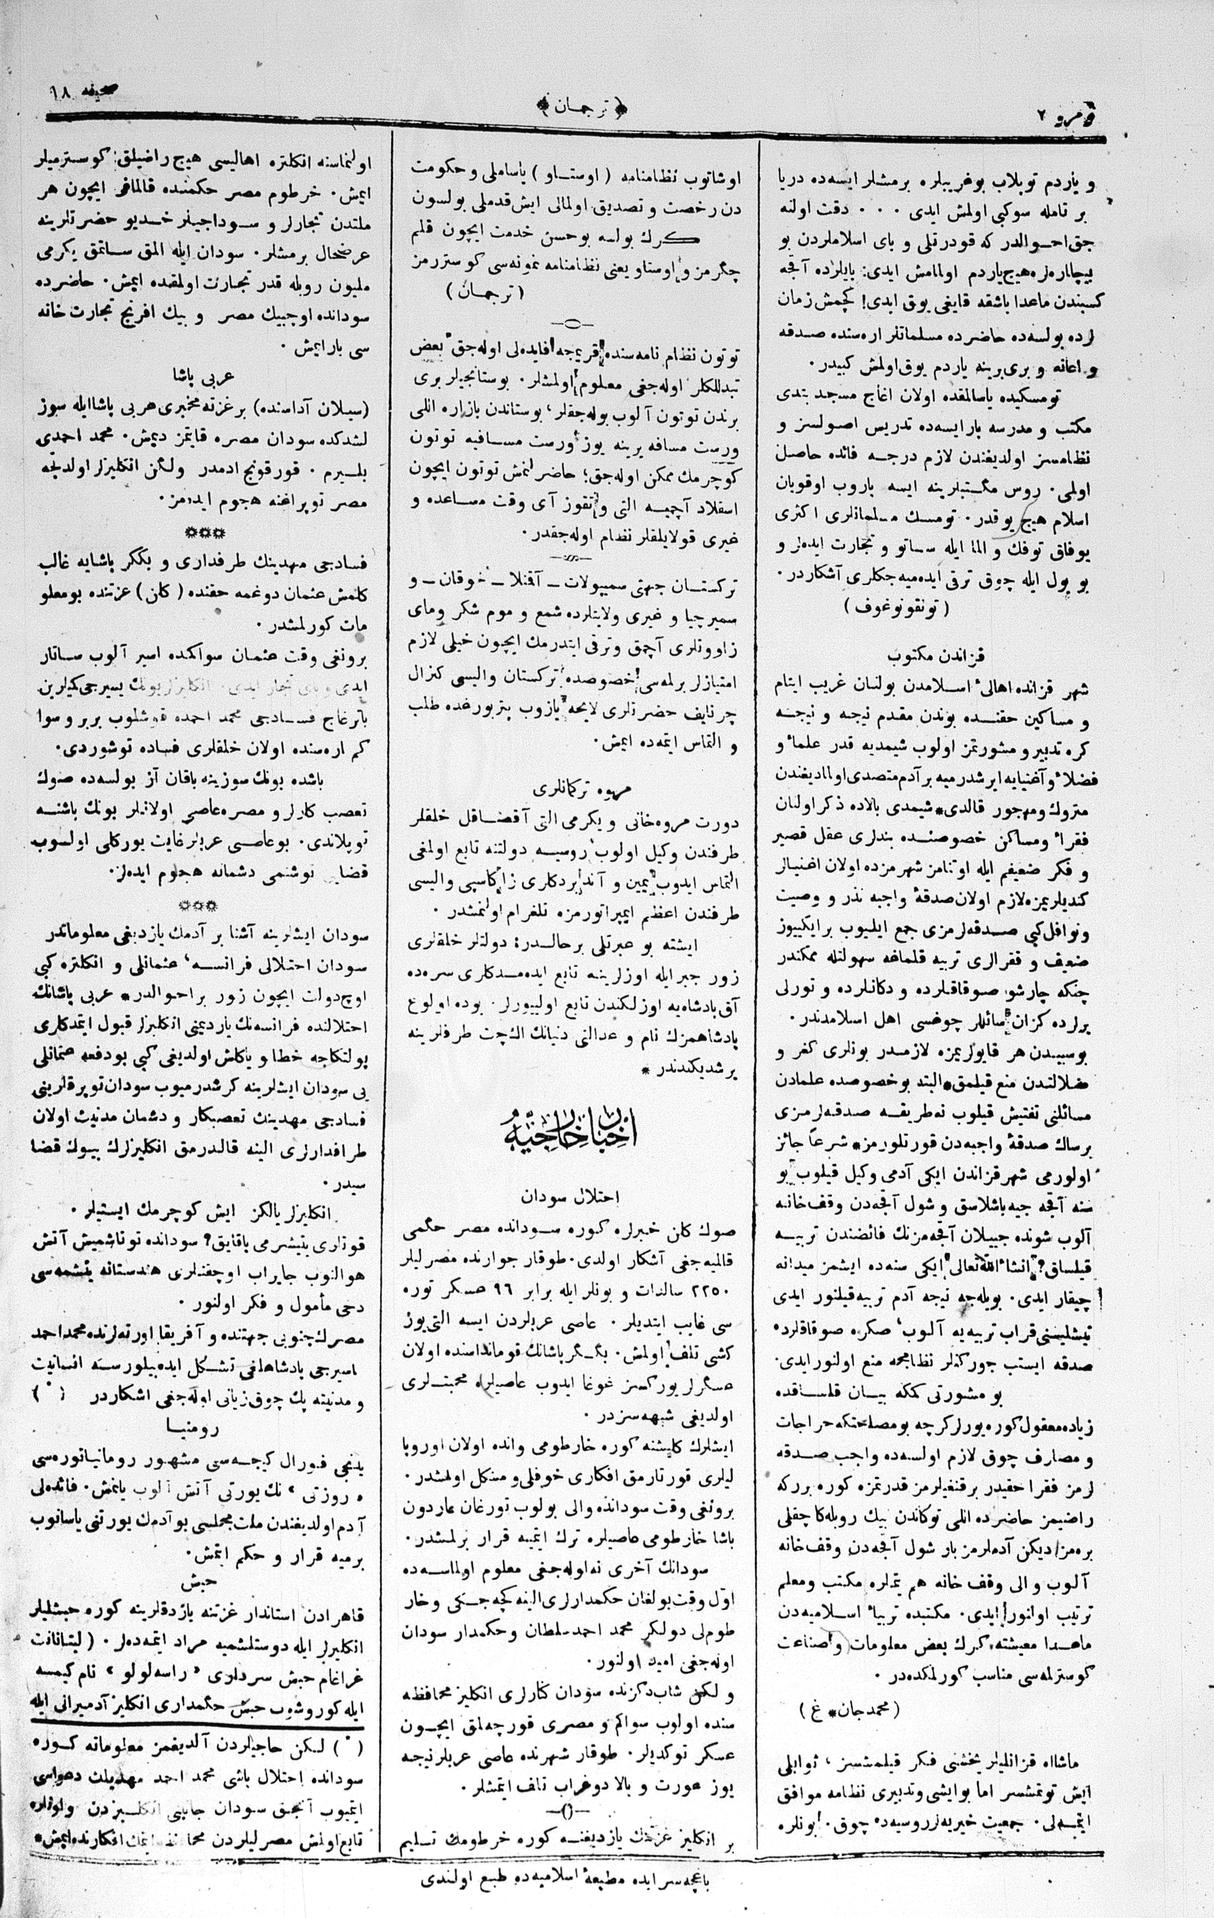 نومرو ٢
﴿ ترجمان ﴾
صحیفه ١٨
و یاردم توپلاب بوغریبلره برمشلر ایسه‌ده دریا
بر تامله سوکبی اولمش ایدی . . . دقت اولنه
جق احوالدر که قودرتلی و بای اسلاملردن بو
بیچاره‌لره هیچ یاردم اولمامش ایدی: بایلرده آقچه
کسبندن ماعدا باشقه قایغی یوق ایدی! کچمش زمان
لرده بولسه‌ده حاضرده مسلمانلر اره‌سنده صدقه
و اعانه و بری برینه یاردم یوق اولمش کبیدر.
تومسکیده یاسالمقده اولان اغاج مسجد بتدی
مکتب و مدرسه بار ایسه‌ده تدریس اصولسز و
نظامسز اولدیغندن لازم درجه فائده حاصل
اولمی. روس مکتبلرینه ایسه یاروب اوقویان
اسلام هیچ یوقدر. تومسک مسلمانلری اکثری
یوفاق توفک و الما ایله ساتو و تجارت ایده‌لر و
بو یول ایله چوق ترقی ایده‌میه‌جکلری آشکاردر.
( تونقونوغوف )
قزاندن مکتوب
شهر قزانده اهالیٔ اسلامدن بولنان غریب ایتام
و مساکین حقنده بوندن مقدم نیجه و نیجه
کره تدبیر و مشورتمز اولوب شیمدیه قدر علماء و
فضلاء و آغنیایه ایرشدرمیه بر آدم متصدی اولمادیغندن
متروک و مهجور قالدی* شیمدی بالاده ذکر اولنان
فقراء و مساکن خصوصنده بندلری عقل قصیر
و فکر ضعیفم ایله اوتنامز شهرمزده اولان اغنیالر
کندیلریمزه لازم اولان صدقهٔ واجبه نذر و وصیت
و نوافل کبی صدقه‌لرمزی جمع ایلیوب بر ایکییوز
ضعیف و فقرالری تربیه قلماغه سهولتله ممکندر
چنکه چارشو، صوقاقلرده و دکانلرده و تورلی
یرلرده کزان سائللر چوخسی اهل اسلامدندر.
بوسبیدن هر قایولریمزه لازمدر بونلری کفر و
ضلالتدن منع قیلمق* البتد بو خصوصده علمادن
مسائلنی تفتیش قیلوب نه‌طریقه صدقه‌لرمزی
برساک صدقهٔ واجبه‌دن قورتلورمز* شرعاً جائز
اولورمی شهر قزاندن ایکی آدمی وکیل قیلوب بو
سنه آقچه جیه باشلاسق و شول آقچه‌دن وقف‌خانه
آلوب شونده جییلان آقچه‌مزنک فائضندن تربیه
قیلساق؟ انشاء الله تعالی ایکی سنه‌ده ایشمز میدانه
چیقار ایدی. بویله‌جه نیجه آدم تربیه قیلنور ایدی
تیشلیسنی قراب تربیه‌یه آلوب، صکره صوقاقلرده
صدقه ایستب جورکانلر نظامجه منع اولنور ایدی.
بو مشورتی کمکه بیان قلساقده
زیاده معقول کوره‌یورلر کرچه بو مصلحتکه حراجات
و مصارف چوق لازم اولسه‌ده واجب صدقه
لرمز فقراء حقیدر برقنغیلرمز قدرتمزه کوره بررکه
راضیمز حاضرده انلی توکاندن بیک روبله‌کاچقلی
بره‌مز، دیکن آدملرمز بار شول آقچه‌دن وقف‌خانه
آلوب و الی وقف‌خانه هم یتملره مکتب و معلم
ترتیب اولنور ایدی. مکتبده تربیهٔ اسلامیه‌دن
ماعدا معیشته کرک بعض معلومات و صناعت
کوسترلمه‌سی مناسب کورلمکده‌در.
( محمدجان* غ )
ماشااء قزانلیلر یخشی فکر قیلمشسز، ثوابلی
ایش توتمشسز اما بو ایشی و تدبیری نظامه موافق
ایتمه‌لی. جمعیت خیریه‌لر روسیه‌ده چوق. بونلره
اوشاتوب نظامنامه ( اوستاو ) یاساملی و حکومت
دن رخصت و تصدیق اولمالی ایش قدملی بولسون
کرک بولسه بو حسن خدمت ایچون قلم
چکرمز و اوستاو یعنی نظامنامه نمونه‌سی کوسترر‌مز
( ترجمان )
توتون نظام نامه سنده قریمچه فایده‌لی اوله‌جق بعض
تبدللکلر اوله‌جغی معلوم اولمشلر. بوستانجیلر بری
برندن توتون آلوب بوله‌جقلر، بوستاندن بازاره اللی
ورست مسافه یرینه یوز ورست مسافیه توتون
کوچرمک ممکن اوله‌جق؛ حاضرلنمش توتون ایچون
اسقلاد آچمیه التی و تقوز آی وقت مساعده و
غیری قولایلقلر نظام اوله‌جقدر.
ترکستان جهتی سمیپولات ــ آقتلا ــ خوقان ــ و
سمیرچیا و غیری ولایتلرده شمع و موم شکر و مای
زاووتلری آچمق و ترقی ایتدرمک ایچون خیلی لازم
امتیازلر برلمه‌سی خصوصده ترکستان والیسی کنرال
چرنایف حضرتلری لایحه یازوب پتربورغده طلب
و التماس ایتمه‌ده ایمش.
مروه ترکمانلری
دورت مروه‌خانی و یکرمی التی آقضاقل خلقلر
طرفندن وکیل اولوب روسیه دولتنه تابع اولمغی
التماس ایدوب یمین و آند بردکلری زاکاسپی والیسی
طرفندن اعظم ایمپراتورمزه تلغرام اولنمشدر.
ایشته بو عبرتلی برحالدر: دولتلر خلقلری
زور جبر ایله اوزلرینه تابع ایده‌مدکلری سره‌ده
آق پادشاه‌یه اوز لکندن تابع اولیورلر. بوده اولوغ
پادشاهمزک نام و عدالتی دنیانک الک چت طرفلرینه
یرشدیکندندر *
اخبار خارجیه
احتلال سودان
صوک کلن خبرلره کوره سودانده مصر حکمی
قالمیه‌جغی آشکار اولدی. طوقار جوارنده مصرلیلر
٢٢٥٠ سالدات و بونلر ایله برابر ٩٦ عسکر توره
سی غایب ایتدیلر. عاصی عربلردن ایسه التی یوز
کشی تلف اولمش. بککر پاشانک قومانداسنده اولان
عسکرلر یورکسز غوغا ایدوب عاصیلره محبتلری
اولدیغی شبهه‌سزدر.
ایشلرک کلیشنه کوره خارطومی و انده اولان اوروپا
لیلری قورتارمق افکاری خوفلی و مشکل اولمشدر.
برونغی وقت سودانده والی بولوب تورغان غاردون
پاشا خارطومی عاصیلره ترک ایتمیه قرار برلمشدر.
سودانک آخری نه اوله‌جغی معلوم اولماسه‌ده
اوّل وقت بولغان حکمدارلری الینه کچه‌جکی و خار
طوم‌لی دولکر محمد احمد سلطان و حکمدار سودان
اوله‌جغی امید اولنور.
و لکن شاب دکزنده سودان کنارلری انکلیز محافظه
سنده اولوب سواکم و مصری قورچه‌لمق ایچون
عسکر توکدیلر. طوقار شهرنده عاصی عربلر نیجه
یوز عورت و بالا دوغراب تلف ایتمشلر.
بر انکلیز غزتنک یازدیغنه کوره خرطومک تسلیم
اولنماسنه انکلتره اهالیسی هیچ راضیلق کوسترمیلر
ایمش. خرطوم مصر حکمنده قالماقی ایچون هر
ملتدن تجارلر و سوداجیلر خدیو حضرتلرینه
عرضحال برمشلر. سودان ایله المق ساتمق یکرمی
ملیون روبله قدر تجارت اولمقده ایمش. حاضرده
سودانده اوچبیک مصر و بیک افرنج تجارت خانه
سی بار ایمش.
عربی پاشا
(سیلان آداسنده) بر غزته مخبری عربی پاشا ایله سوز
لشدکده سودان مصره قایتمز دیمش. محمد احمدی
بلمیرم. قورقونج ادمدر ولکن انکلیزلر اولدقجه
مصر توپراغنه هجوم ایده‌مز.
***
فسادجی مهدینک طرفداری و بککر پاشایه غالب
کلمش عثمان دوغمه حقنده (کان) غزتنده بو معلو
مات کورلمشدر.
برونغی وقت عثمان سواکمده اسیر آلوب ساتار
ایدی و بای تجار ایدی. انکلیزلر بونک یسیرجی کیلرین
باترغاچ فسادجی محمد احمده قوشلوب بربر و سوا
کم اره‌سنده اولان خلقلری فساده توشوردی.
باشده بونک سوزینه باقان آز بولسه‌ده صوک
تعصب کارلر و مصره عاصی اولانلر بونک باشنه
توپلاندی. بو عاصی عربلر غایت یورکلی اولسوب
قضایی توشنمی دشمانه هجوم ایده‌لر.
***
سودان ایشلرینه آشنا بر آدمک یازدیغی معلوماتدر
سودان احتلالی فرانسه، عثمانلی و انکلتره کبی
اوچ دولت ایچون زور بر احوالدر* عربی پاشانک
احتلالنده فرانسه‌نک یاردیمنی انکلیزلر قبول ایتمدکاری
بولتکاجه خطا و یاکلش اولدیغی کبی بو دفعه عثمانلی
یی سودان ایشلرینه کرشدرمیوب سودان توپرقلرینی
فسادجی مهدینک تعصبکار و دشمان مدنیت اولان
طرافدارلری الینه قالدرمق انکلیزلرک بیوک قضا
سیدر.
انکلیزلر یالکز ایش کوچرمک ایستیلر.
قوتلری یتیشرمی باقایق؟ سودانده توتاشمیش آتش
هوالنوب جایراب اوچقنلری هندستانه یتشمه‌سی
دحی مأمول و فکر اولنور.
مصرک جنوبی جهتنده و آفریقا اورته‌لرنده محمد احمد
اسیرجی پادشاهلغی تشکل ایده‌بیلورسه انسانیت
و مدنیته پک چوق زیانی اوله‌جغی اشکاردر ( * )
رومنیا
یدنجی فورال کیجه‌سی مشهور رومانیا توره‌سی
« روزتی » نک یورتی آتش آلوب یانمش. فائده‌لی
آدم اولدیغندن ملت مجلسی بو آدمک یورتنی یاسانوب
برمیه قرار و حکم ایتمش.
حبش
قاهرادن استاندار غزتنه یازدقلرینه کوره حبشلیلر
انکلیزلر ایله دوستلشمیه مراد ایتمه‌ده‌لر. (لیتانانت
غراغام حبش سرداری « راسه‌لولو » نام کیمسه
ایله کوروشوب حبش حکمداری انکلیز آدمیرانی ایله
( * ) لیکن حاجیلردن آلدیغمز معلوماته کوره
سودانده احتلال باشی محمد احمد مهدیلک دعواسی
ایتمیوب آنجق سودان جانبنی انکلیزدن و اونلره
تابع اولمش مصرلیلردن محافظه ایتمک افکارنده ایمش*
باغچه‌سرایده مطبعهٔ اسلامیه‌ده طبع اولندی